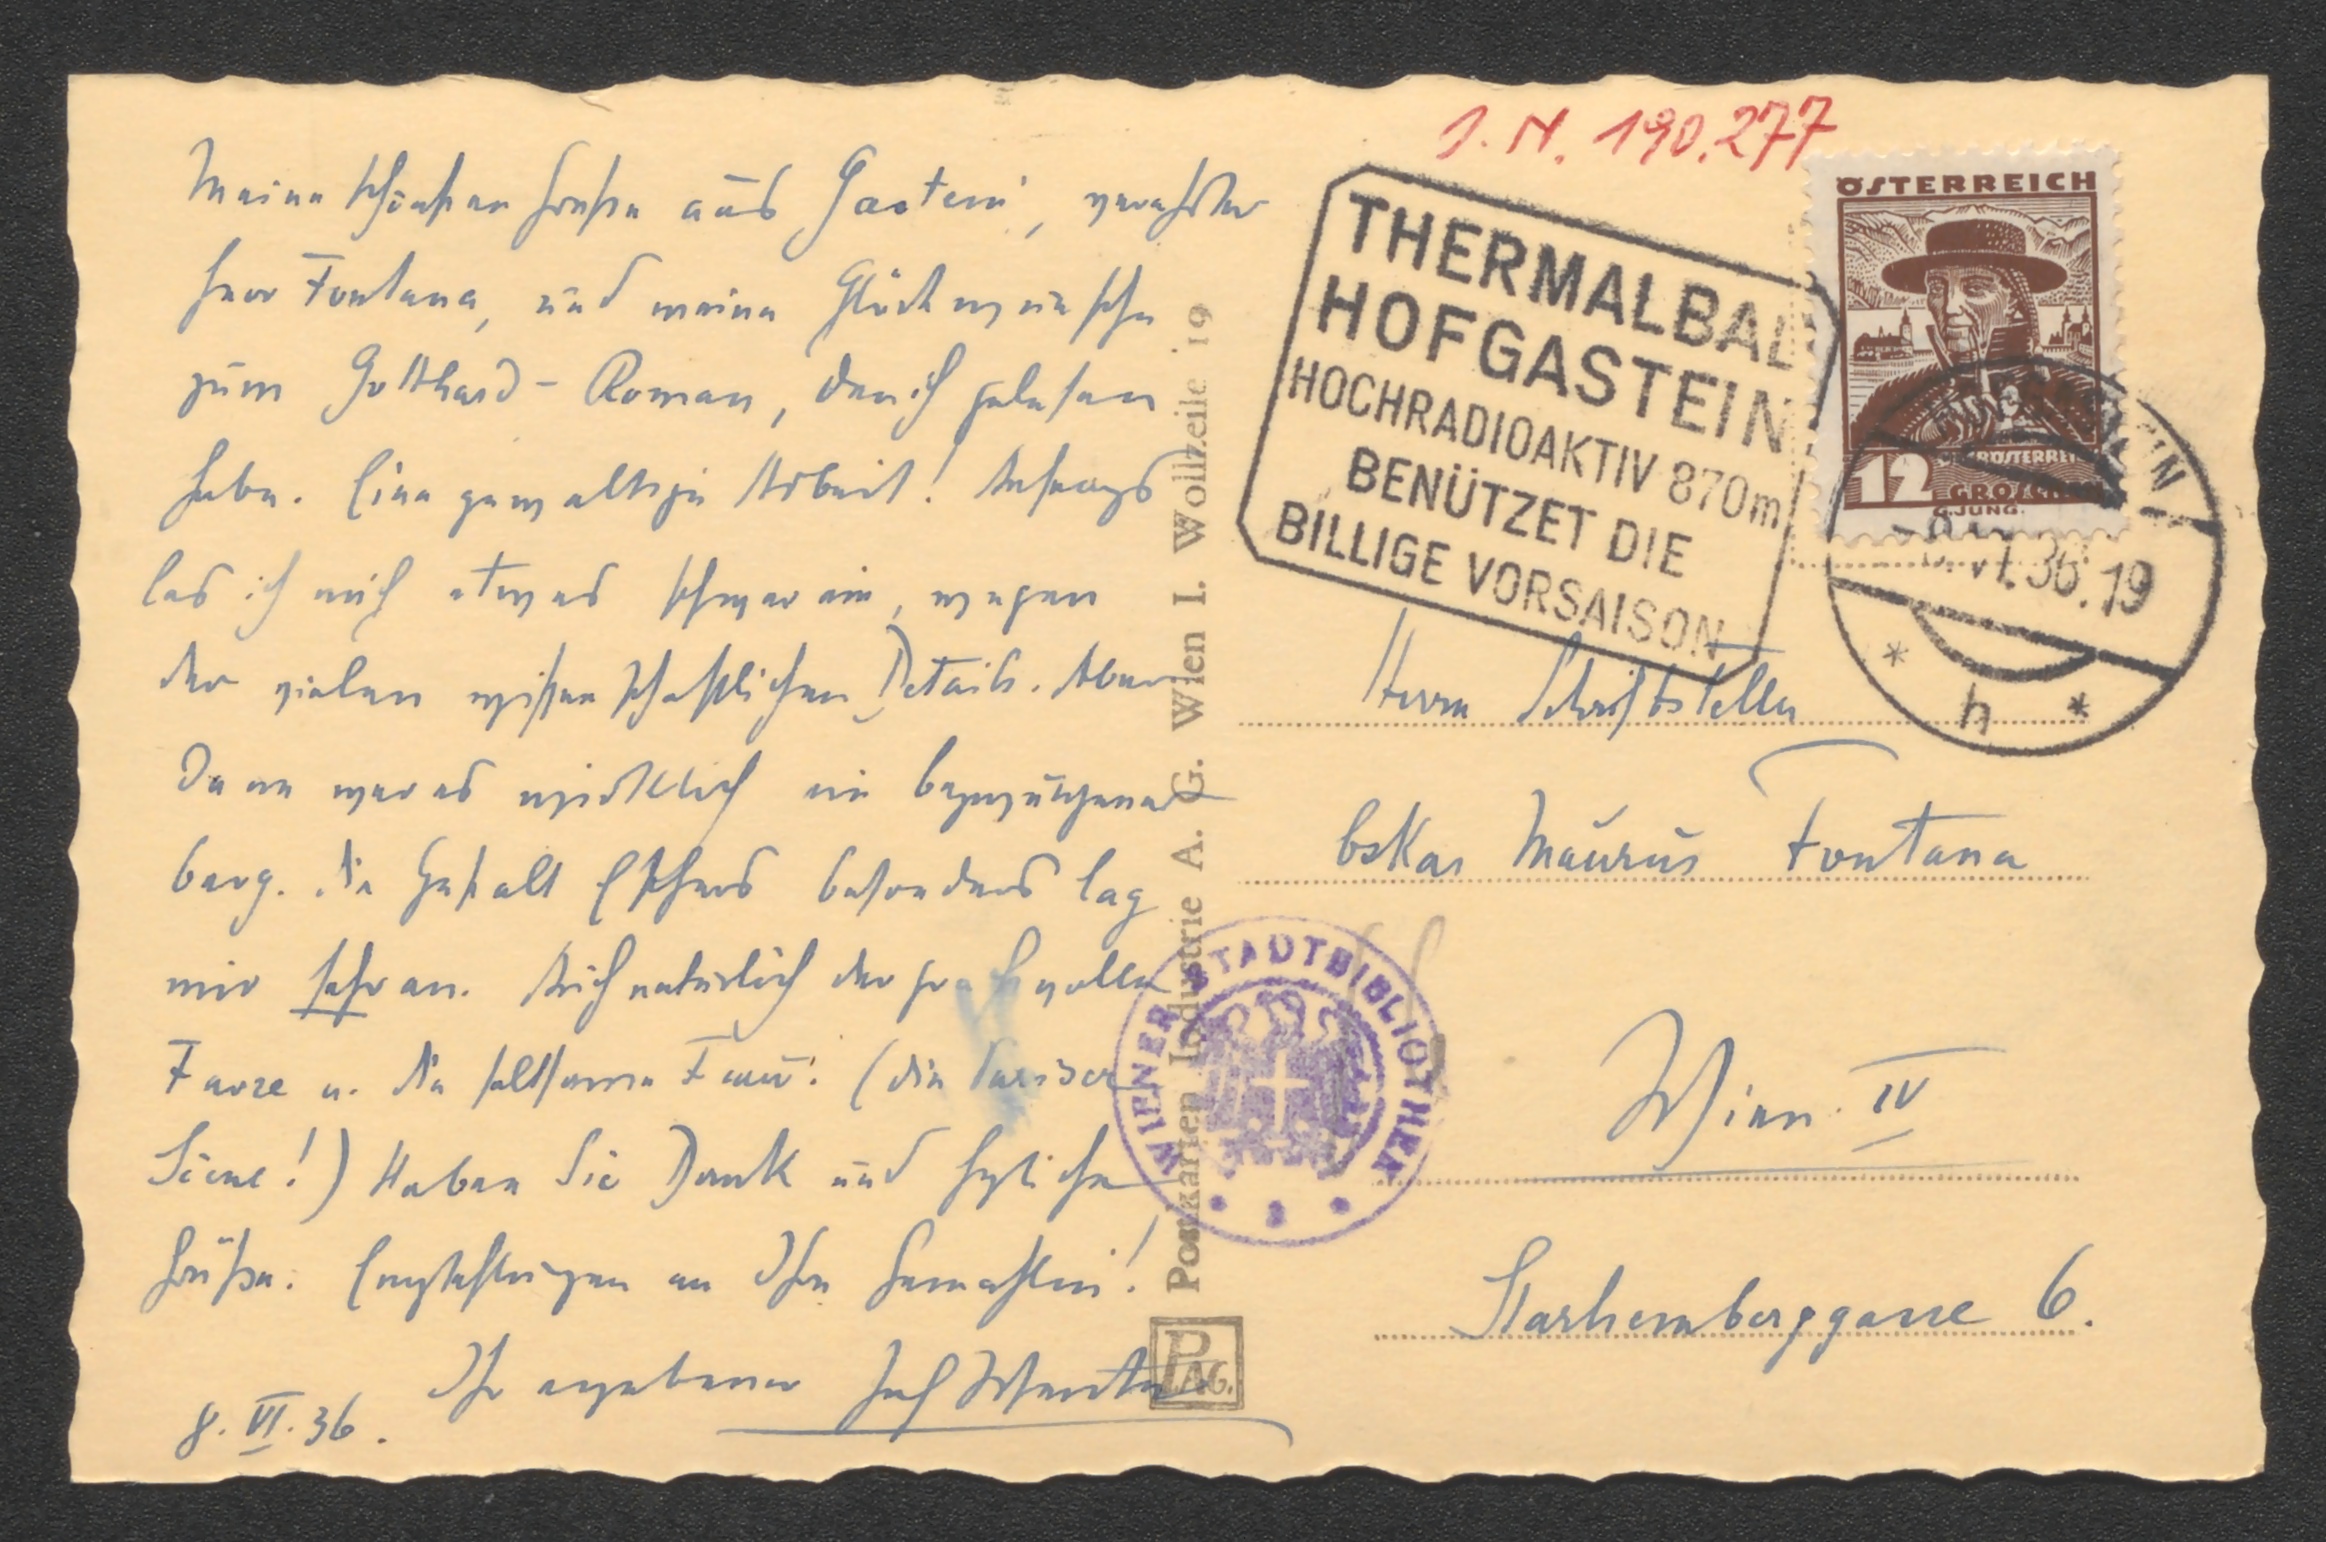 Meine schönsten Grüße aus Gastein, verehrter
Herr Fontana, und meine Glückwünsche
zum Gotthard-Roman, den ich gelesen
habe. Eine gewaltige Arbeit! Anfangs
las ich mich etwas schwer ein, wegen
der vielen wissenschaftlichen Details. Aber
dann war es wirklich ein bezwungener
Berg. Die Gestalt Eschers besonders lag
mir sehr an. Auch natürlich der prachtvolle
Favre u. die seltsame Frau: (die Pariser
Scene!) Haben Sie Dank und herzliche
Grüße. Empfehlungen an Ihre Gemahlin!
Ihr ergebener
8. VI. 36.
Postkarten Industrie A. G. Wien I. Wollzeile 19
PAG.
J. N. 190.277
THERMALBAD
HOFGASTEIN
HOCHRADIOAKTIV 870m
BENÜTZET DIE
BILLIGE VORSAISON
ÖSTERREICH
OBERÖSTERREICH
12 GROSCHEN
G.JUNG
VI.36.19
* h *
Herrn Schriftsteller
Oskar Maurus Fontana
WIENER STADTBIBLIOTHEK
Wien IV
Starhemberggasse 6.